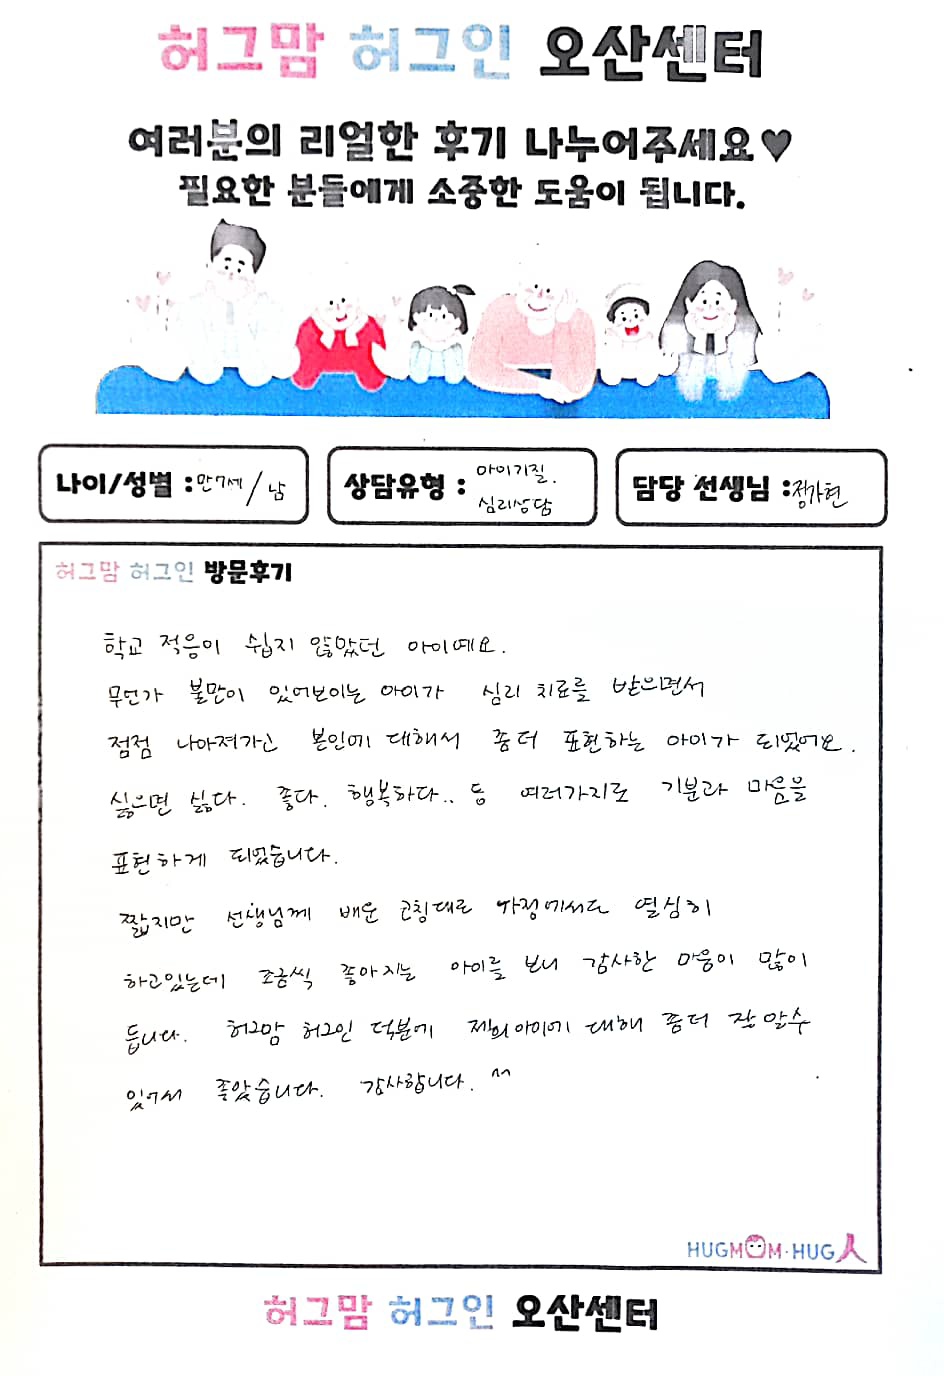 허그맘 허그인 오산센터
여러분의 리얼한 후기 나누어주세요♥
필요한 분들에게 소중한 도움이 됩니다.
나이/성별 : 만7세 / 남
상담유형 : 아이기질. 심리상담
담당 선생님 : 정가현
허그맘 허그인 방문후기
학교 적응이 쉽지 않았던 아이예요.
무언가 불만이 있어보이는 아이가 심리 치료를 받으면서
점점 나아져가고 본인에 대해서 좀더 표현하는 아이가 되었어요.
싫으면 싫다. 좋다. 행복하다.. 등 여러가지로 기분과 마음을
표현하게 되었습니다.
짧지만 선생님께 배운 코칭대로 가정에서도 열심히
하고있는데 조금씩 좋아지는 아이를 보니 감사한 마음이 많이
듭니다. 허그맘 허그인 덕분에 저희아이에 대해 좀더 잘 알수
있어서 좋았습니다. 감사합니다. ^^
HUGMOM·HUG人
허그맘 허그인 오산센터